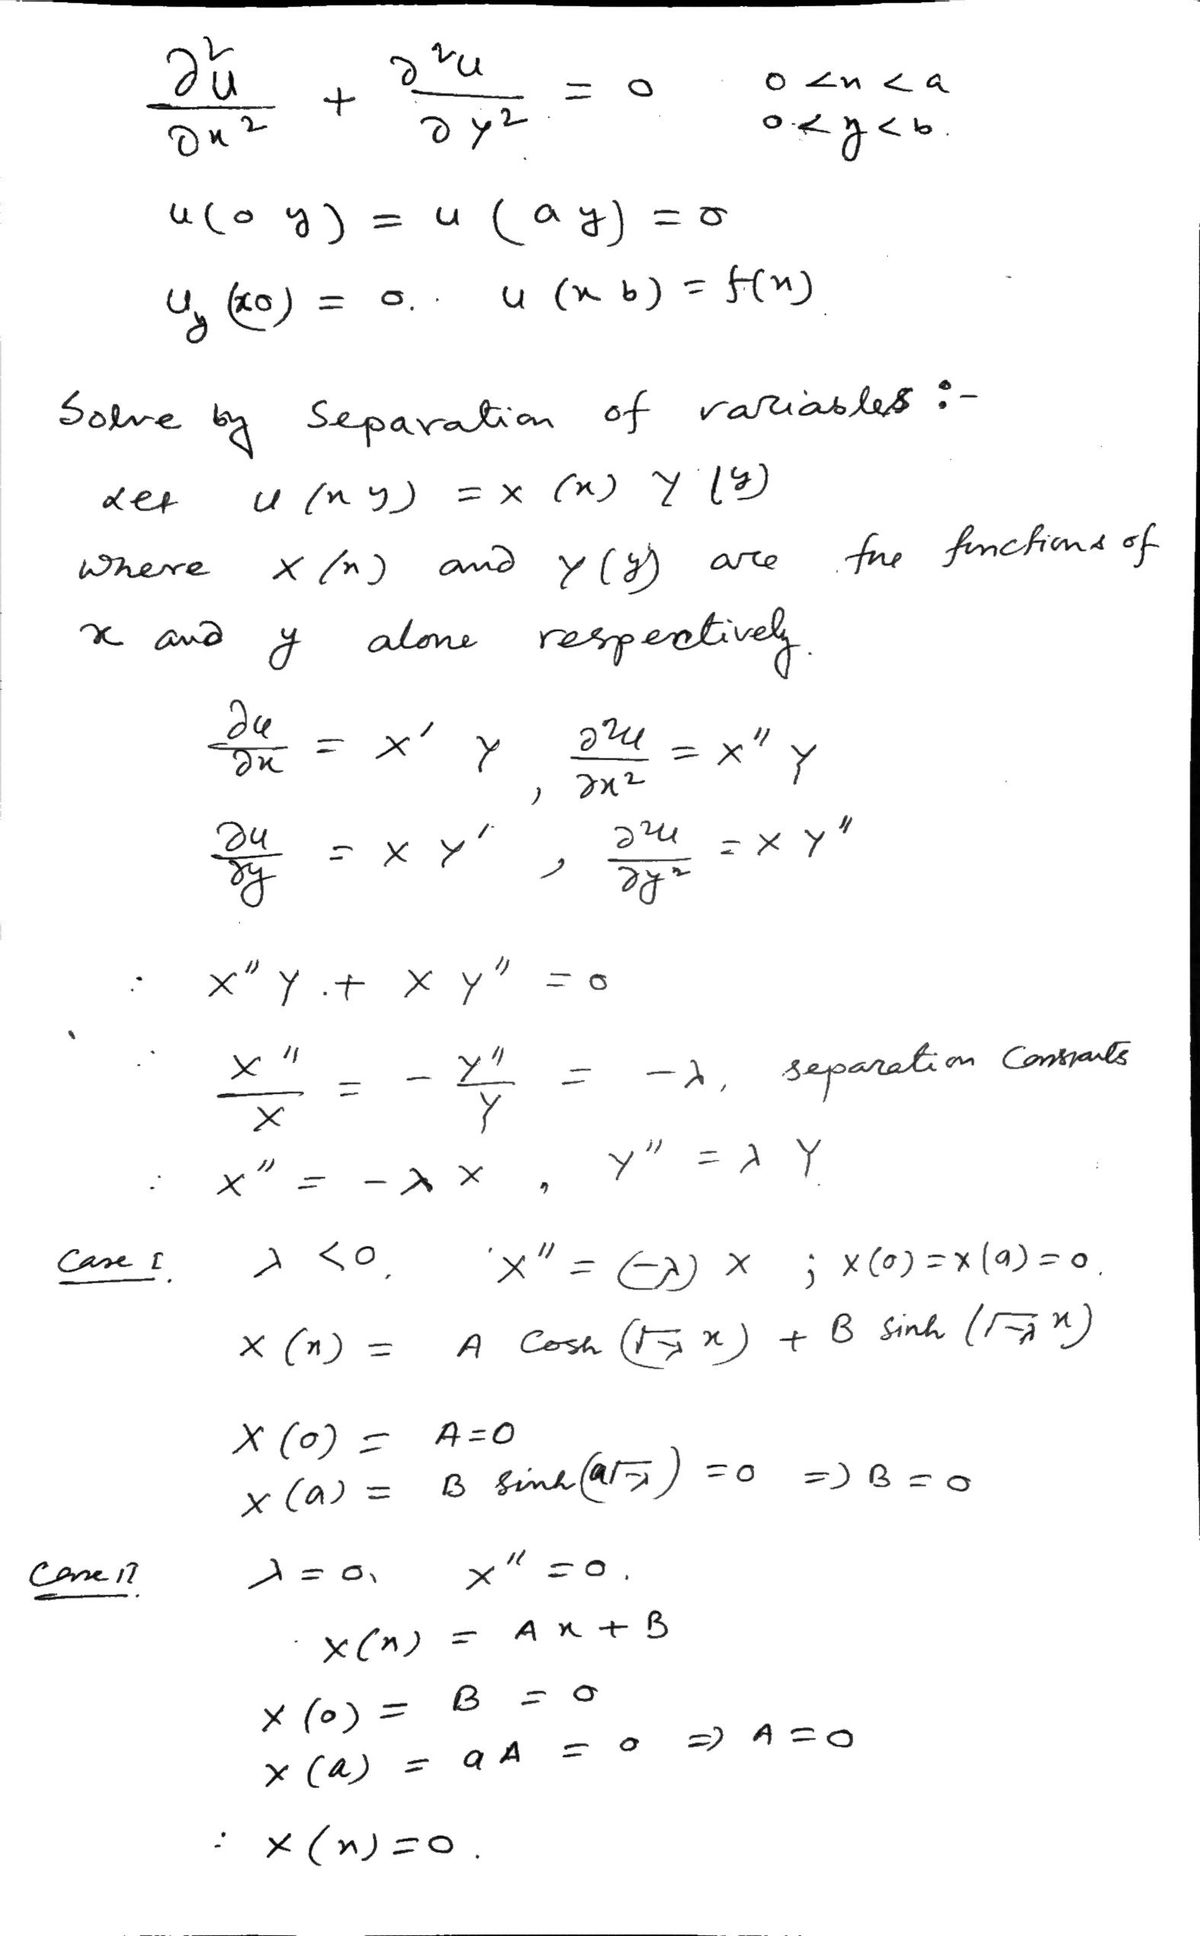 ∂²u/∂x² + ∂²u/∂y² = 0   0 < x < a
0 < y < b.
u(0 y) = u (a y) = 0
u_y (x0) = 0.. u (x b) = f(x)
Solve by Separation of variables :-
Let u (x y) = X (x) Y (y)
where X (x) and Y (y) are the functions of
x and y alone respectively.
∂u/∂x = X' Y , ∂²u/∂x² = X'' Y
∂u/∂y = X Y' , ∂²u/∂y² = X Y''
∴ X'' Y + X Y'' = 0
∴ X''/X = - Y''/Y = -λ, separation Constants
∴ X'' = -λ X , Y'' = λ Y
Case I. λ < 0, X'' = (-λ) X ; X(0) = X(a) = 0.
X (x) = A Cosh (√-λ x) + B Sinh (√-λ x)
X (0) = A = 0
X (a) = B Sinh (a√-λ) = 0 => B = 0
Case II λ = 0, X'' = 0.
X(x) = A x + B
X (0) = B = 0
X (a) = a A = 0 => A = 0
∴ X (x) = 0.